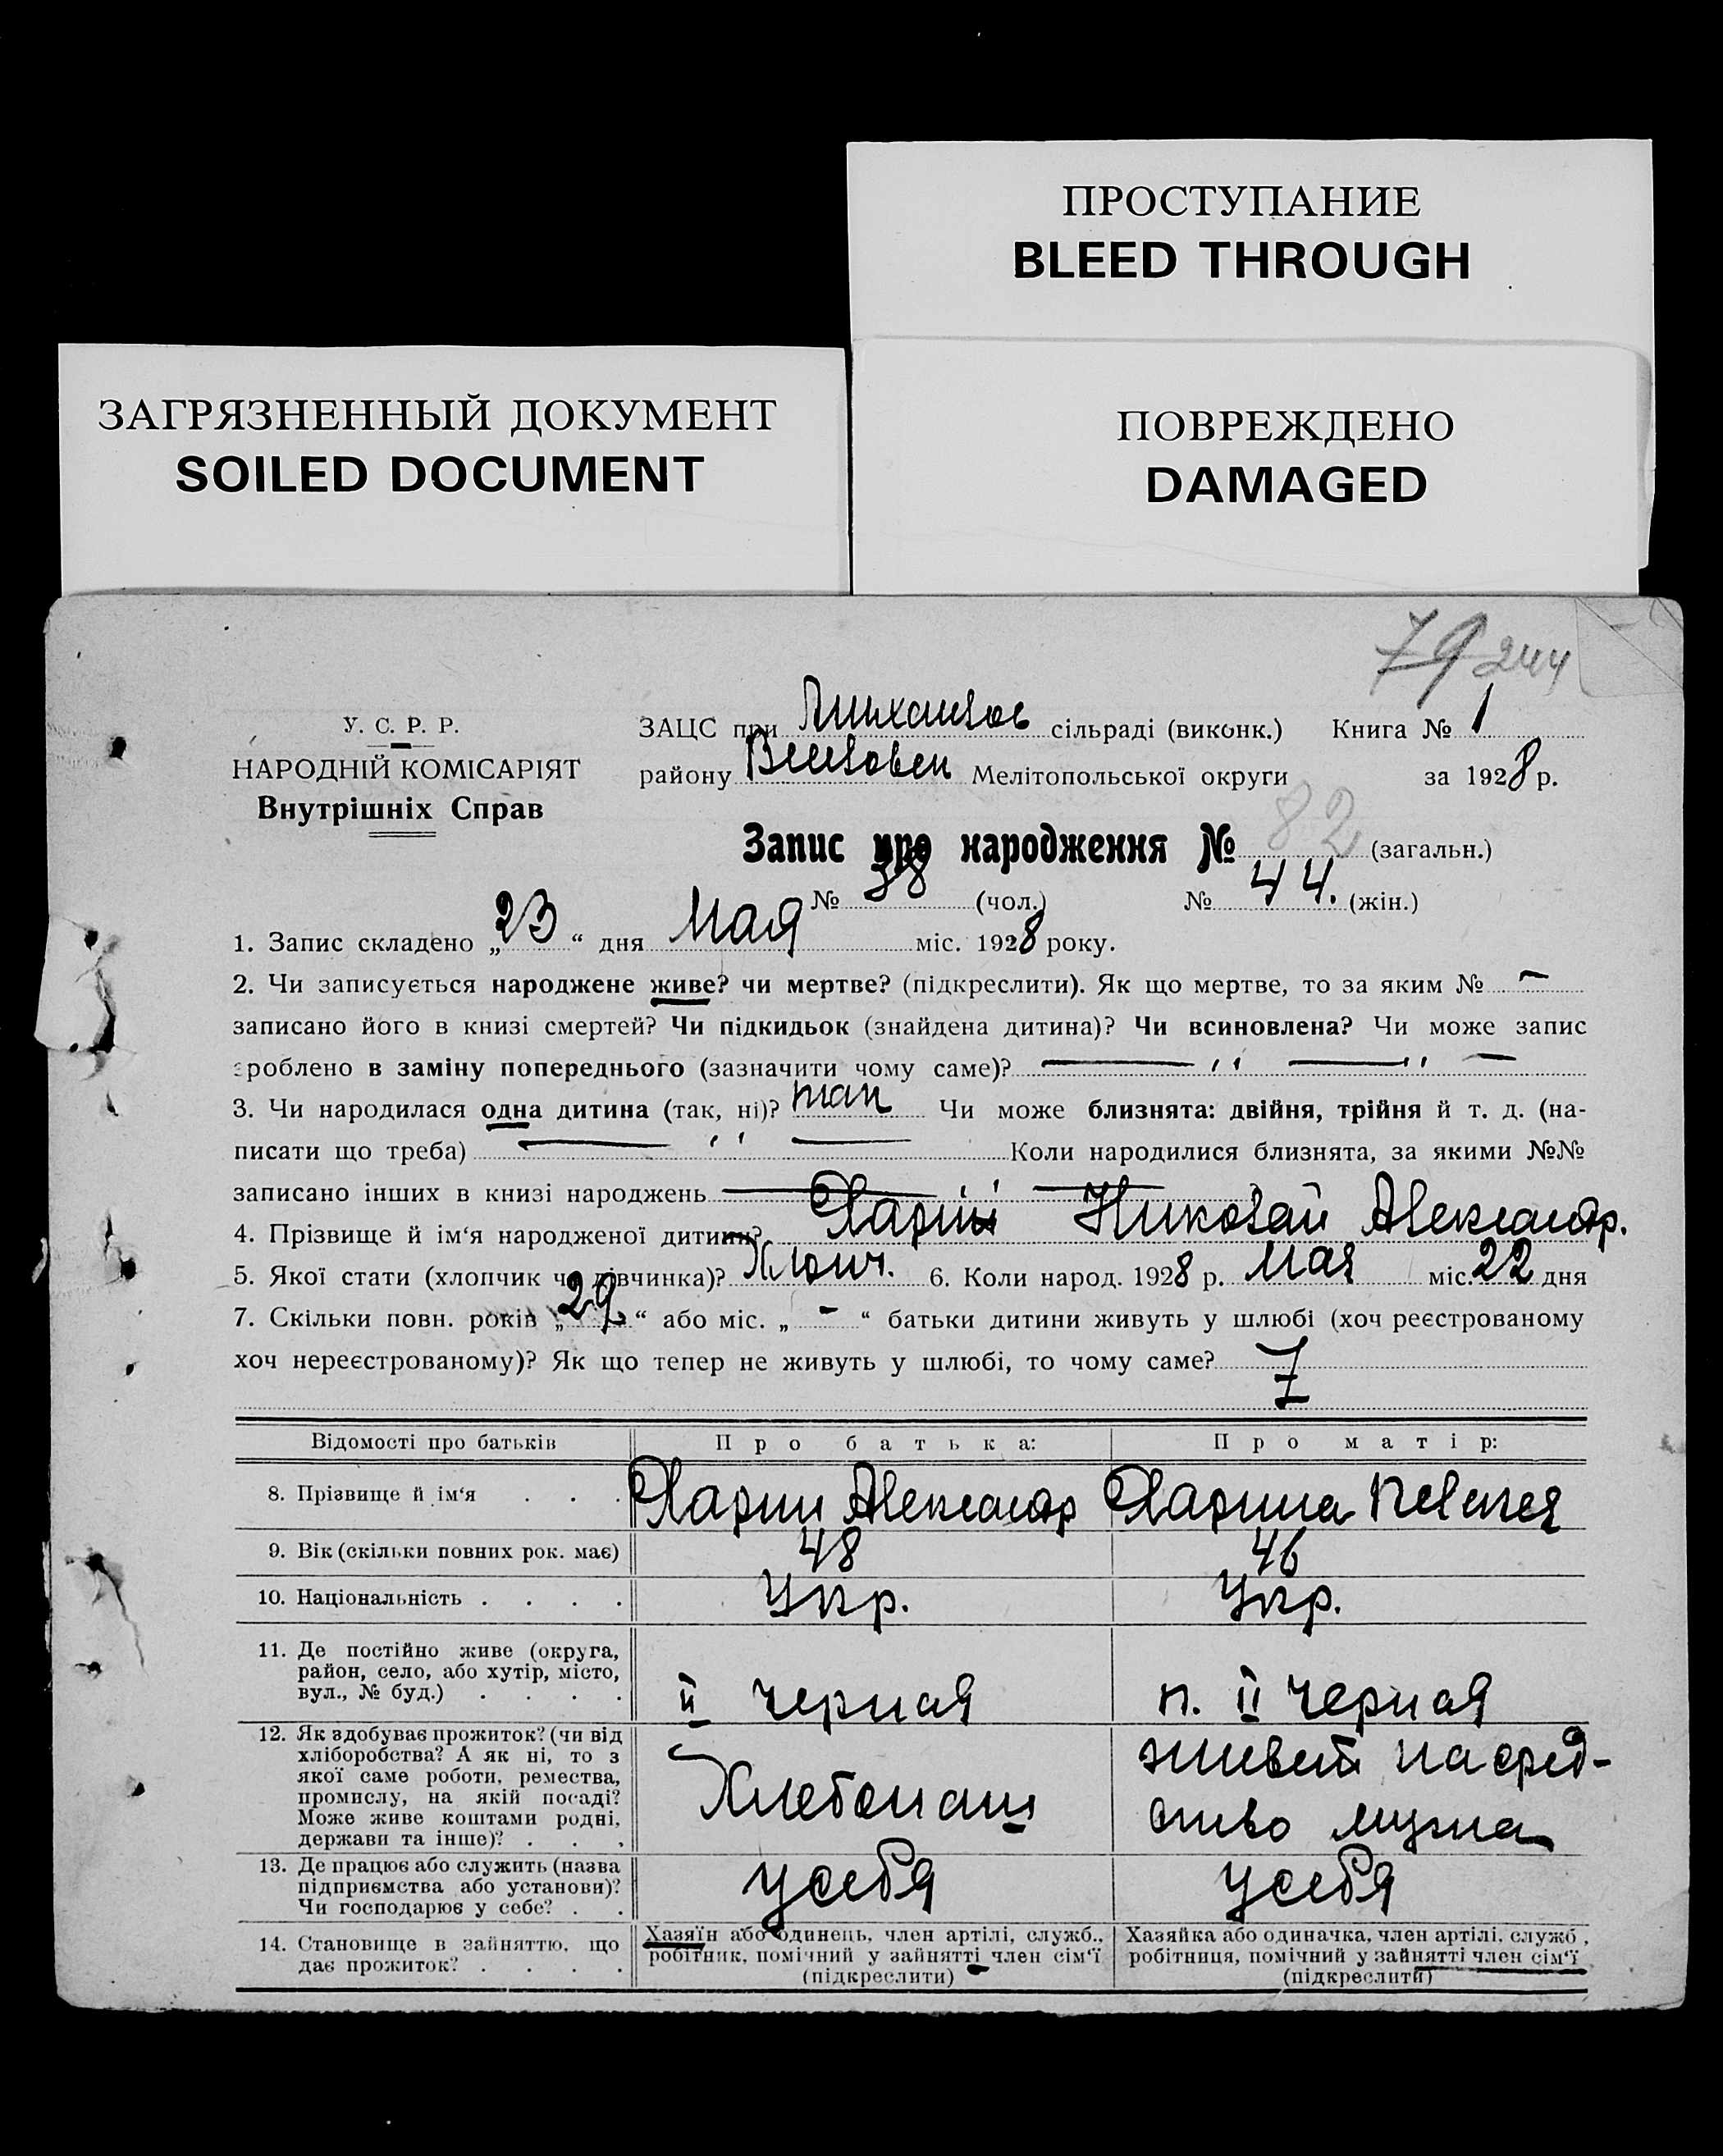 ПРОСТУПАНИЕ
BLEED THROUGH
ЗАГРЯЗНЕННЫЙ ДОКУМЕНТ
SOILED DOCUMENT
ПОВРЕЖДЕНО
DAMAGED
79 244
У. С. Р. Р.
НАРОДНІЙ КОМІСАРІЯТ
Внутрішніх Справ
ЗАЦС при сільраді (виконк.) Книга № 1
району Мелітопольської округи за 1928 р.
Запис про народження № 82 (загальн.)
№ 38 (чол.) № 44. (жін.)
1. Запис складено „23“ дня Мая міс. 1928 року.
2. Чи записується народжене живе? чи мертве? (підкреслити). Як що мертве, то за яким № —
записано його в книзі смертей? Чи підкидьок (знайдена дитина)? Чи всиновлена? Чи може запис
зроблено в заміну попереднього (зазначити чому саме)? — ‚‚ — ‚‚ —
3. Чи народилася одна дитина (так, ні)? так Чи може близнята: двійня, трійня й т. д. (на-
писати що треба) — ‚‚ — Коли народилися близнята, за якими №№
записано інших в книзі народжень — ‚‚ —
4. Прізвище й ім‘я народженої дитини? Николай Александр.
5. Якої стати (хлопчик чи дівчинка)? Хлопч. 6. Коли народ. 1928 р. Мая міс. 22 дня
7. Скільки повн. років „29“ або міс. „ — “ батьки дитини живуть у шлюбі (хоч реєстрованому
хоч нереєстрованому)? Як що тепер не живуть у шлюбі, то чому саме?
Відомості про батьків Про батька: Про матір:
8. Прізвище й ім‘я . . . Александр
9. Вік (скільки повних рок. має) 48 46
10. Національність . . . . Укр. Укр.
11. Де постійно живе (округа,
район, село, або хутір, місто,
вул., № буд.) . . . .
II Черная п. II Черная
12. Як здобуває прожиток? (чи від
хліборобства? А як ні, то з
якої саме роботи, ремества,
промислу, на якій посаді?
Може живе коштами родні,
держави та інше)? . . .
Хлебопаш
живет на сред-
ство мужа
13. Де працює або служить (назва
підприємства або установи)?
Чи господарює у себе? . .
у себя у себя
14. Становище в зайняттю, що
дає прожиток? . . . .
Хазяїн або одинець, член артілі, служб.,
робітник, помічний у зайнятті член сім‘ї
(підкреслити)
Хазяйка або одиначка, член артілі, служб.,
робітниця, помічний у зайнятті член сім‘ї
(підкреслити)